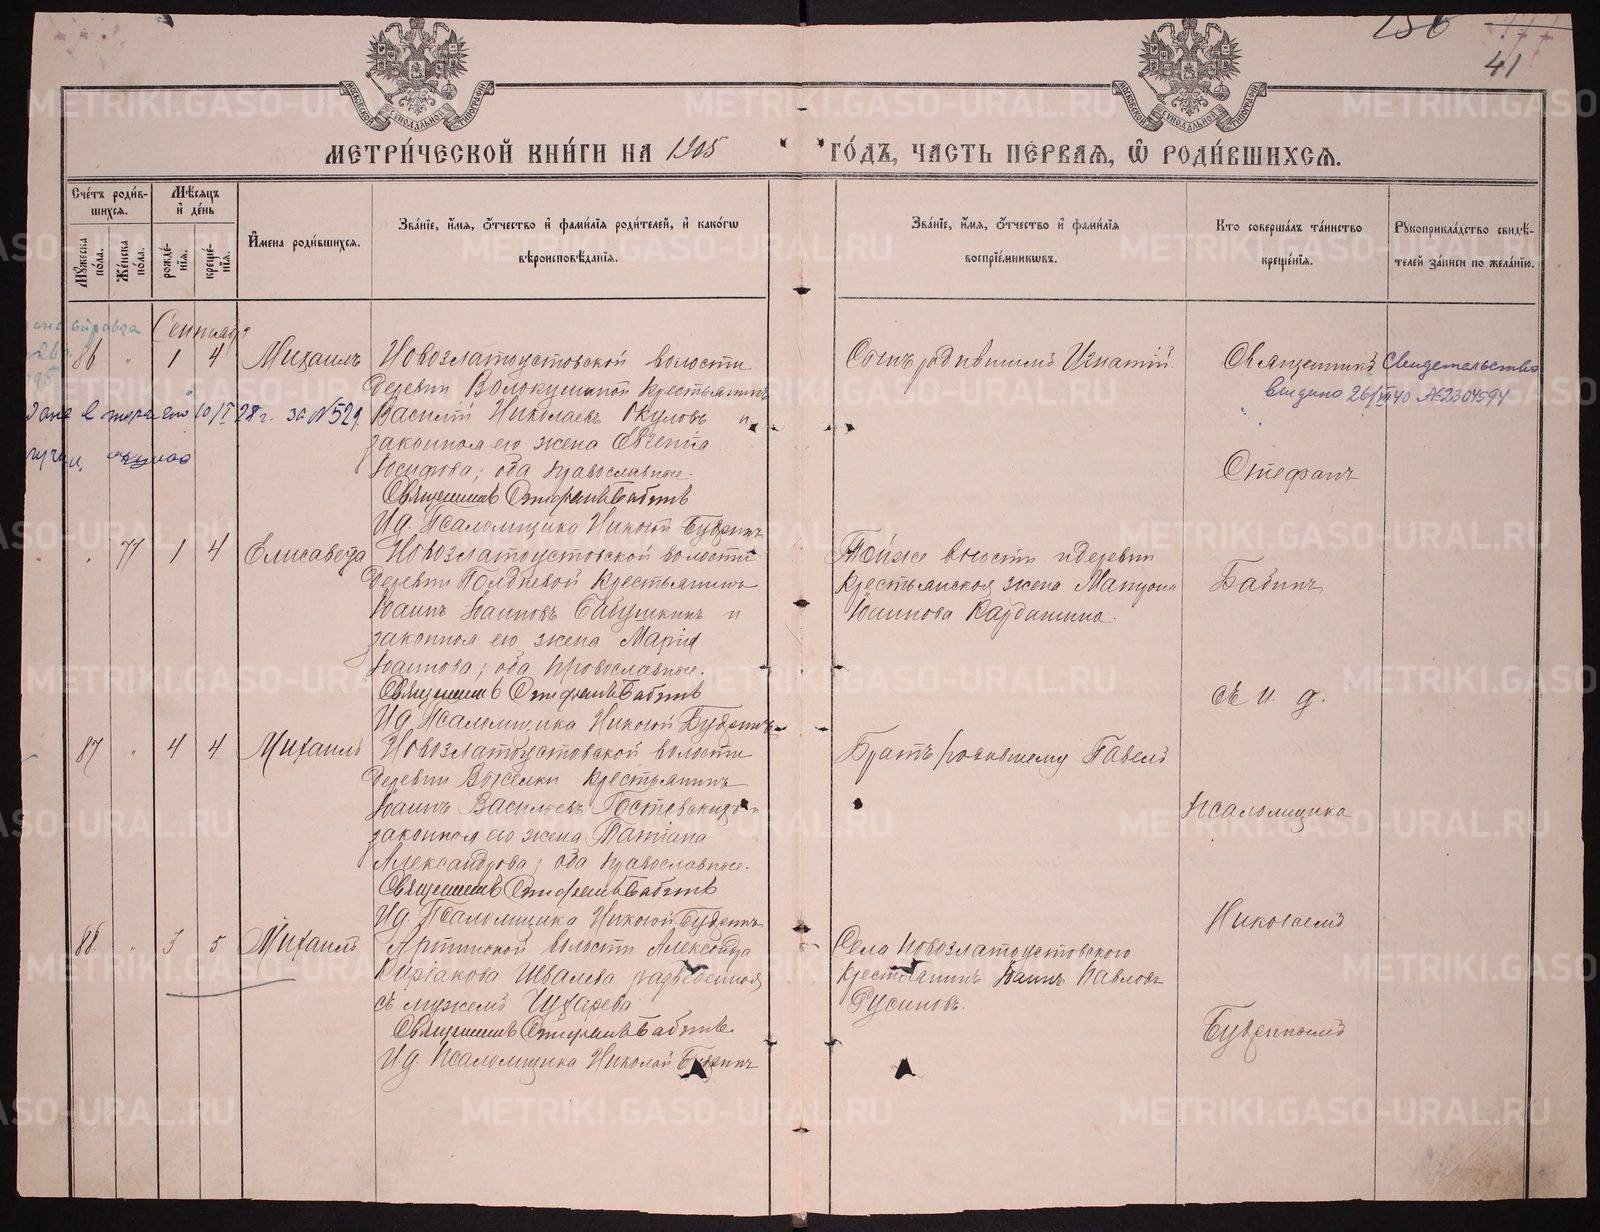 156
177
41
МОСКОВСКОЙ СѴНОДАЛЬНОЙ ТИПОГРАФИИ
МОСКОВСКОЙ СѴНОДАЛЬНОЙ ТИПОГРАФИИ
МЕТРИЧЕСКОЙ КНИГИ НА 1905 ГОДЪ, ЧАСТЬ ПЕРВАЯ, Ѿ РОДИВШИХСЯ.
Счетъ родив-
шихся.
Мѣсяцъ
и день
Мужеска
пола.
Женска
пола.
рожде-
нія.
креще-
нія.
Имена родившихся.
Званіе, имя, отчество и фамилія родителей, и какогѡ
вѣроисповѣданія.
Званіе, имя, отчество и фамилія
воспріемникѡвъ.
Кто совершалъ таинство
крещенія.
Рукоприкладство свидѣ-
телей записи по желанію.
справка
Сентябрь
86 " 1 4 Михаилъ
Новозлатоустовской волости
деревни Волокушиной крестьянинъ
Василій Николаевъ Окуловъ и
законная его жена Евгенія
Іосифова; оба православные.
Священникъ Стефанъ Бабинъ
И.д. Псаломщика Николай
Сынъ родившаго Игнатій.
Священникъ
Стефанъ
Бабинъ
съ и. д.
Псаломщика
Николаемъ
Свидетельство
выдано 26/III 40 № 2304594
10/I 28 г. за № 529.
77 1 4 Елисавета
Новозлатоустовской волости
деревни Полдневой крестьянинъ
Іоаннъ Іоанновъ Бабушкинъ и
законная его жена Марія
Іоаннова; оба православные.
Священникъ Стефанъ Бабинъ
И.д. Псаломщика Николай
Той же волости и деревни
крестьянская жена
Іоаннова
87 " 4 4 Михаилъ
Новозлатоустовской волости
деревни крестьянинъ
Іоаннъ Васильевъ
законная его жена Татіана
Александрова; оба православные.
Священникъ Стефанъ Бабинъ
И.д. Псаломщика Николай
Братъ Павелъ
88 " 3 5 Михаилъ
Артинской волости Александра
Киріакова Швалева разведенная
съ мужемъ
Священникъ Стефанъ Бабинъ
И.д. Псаломщика Николай
Села Новозлатоустовского
крестьянинъ Іоаннъ Павловъ
Русиновъ.
METRIKI.GASO-URAL.RU